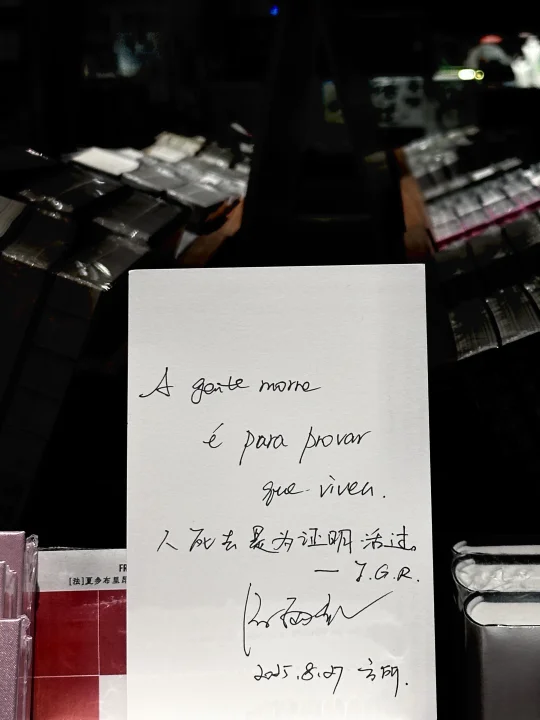 A gente morre
é para provar
que viveu.
人死去是为证明活过。
— J.G.R.
2025.8.27 方所.
FR
[法]夏多布里昂